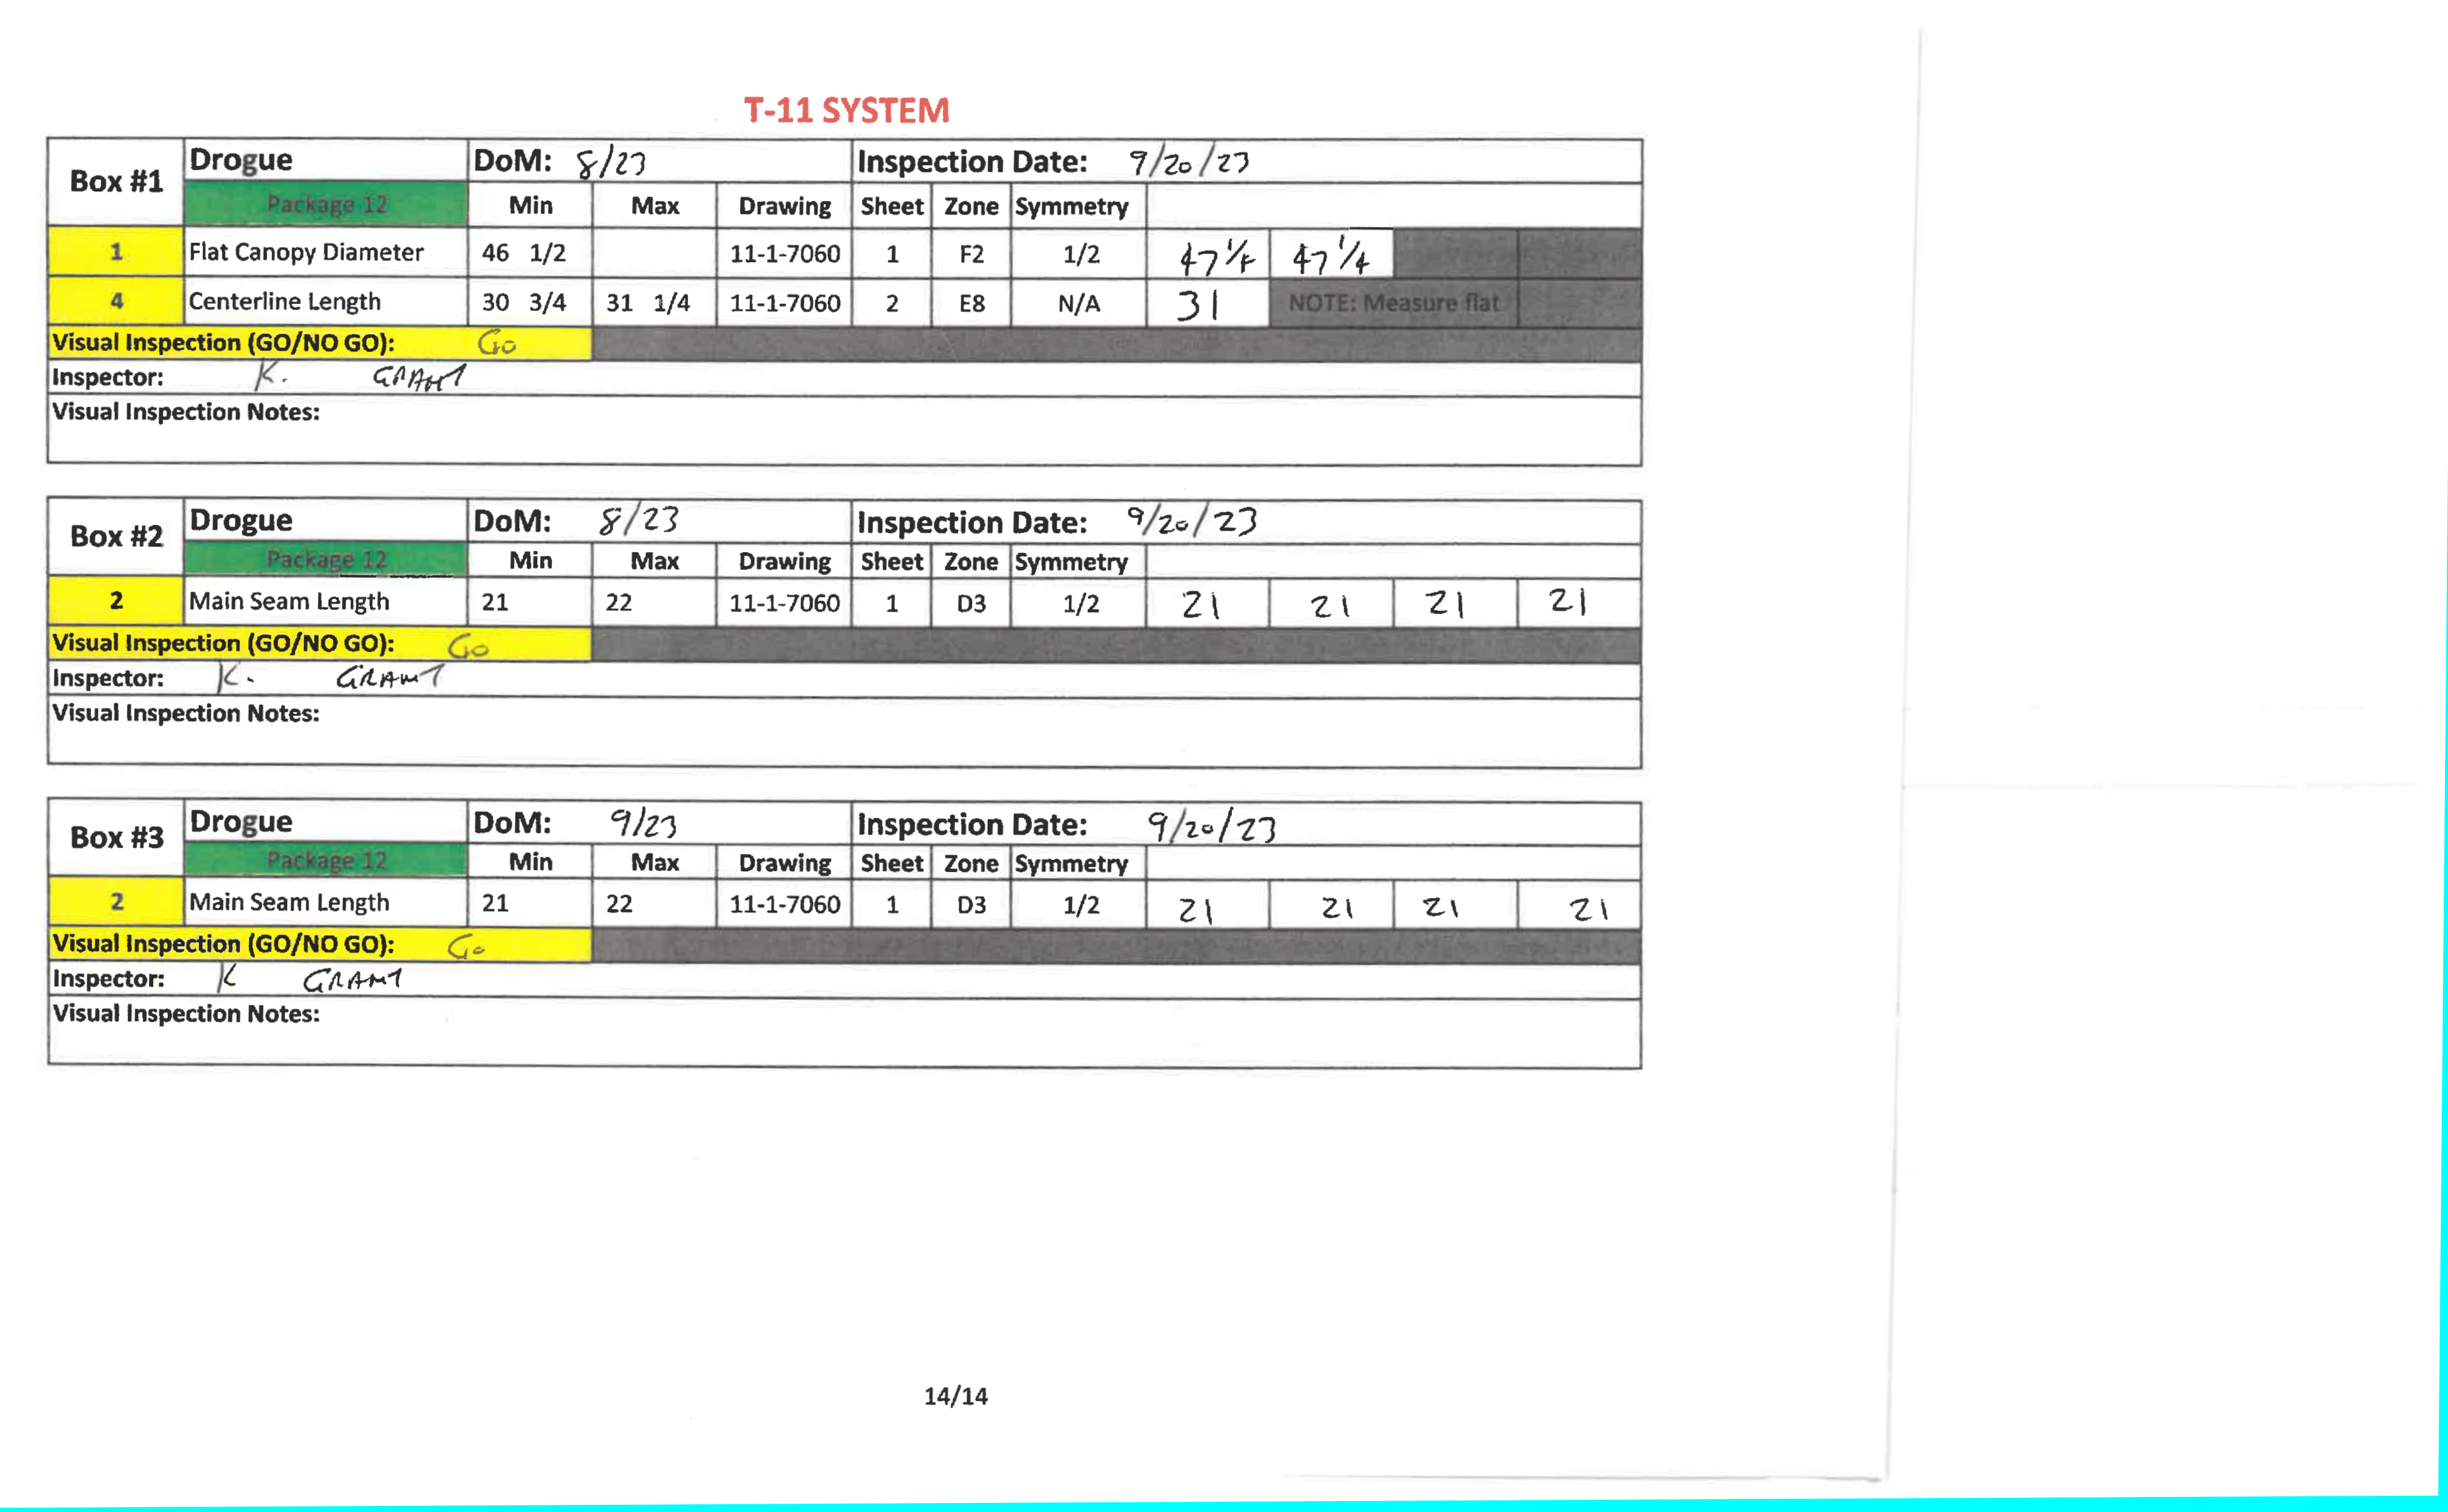 T-11 SYSTEM
Box #1 Drogue DoM: 8/23 Inspection Date: 9/20/23
Package 12 Min Max Drawing Sheet Zone Symmetry
1 Flat Canopy Diameter 46 1/2 11-1-7060 1 F2 1/2 47 1/4 47 1/4
4 Centerline Length 30 3/4 31 1/4 11-1-7060 2 E8 N/A 31 NOTE: Measure flat
Visual Inspection (GO/NO GO): Go
Inspector: K. GRANT
Visual Inspection Notes:
Box #2 Drogue DoM: 8/23 Inspection Date: 9/20/23
Package 12 Min Max Drawing Sheet Zone Symmetry
2 Main Seam Length 21 22 11-1-7060 1 D3 1/2 21 21 21 21
Visual Inspection (GO/NO GO): Go
Inspector: K. GRANT
Visual Inspection Notes:
Box #3 Drogue DoM: 9/23 Inspection Date: 9/20/23
Package 12 Min Max Drawing Sheet Zone Symmetry
2 Main Seam Length 21 22 11-1-7060 1 D3 1/2 21 21 21 21
Visual Inspection (GO/NO GO): Go
Inspector: K GRANT
Visual Inspection Notes:
14/14